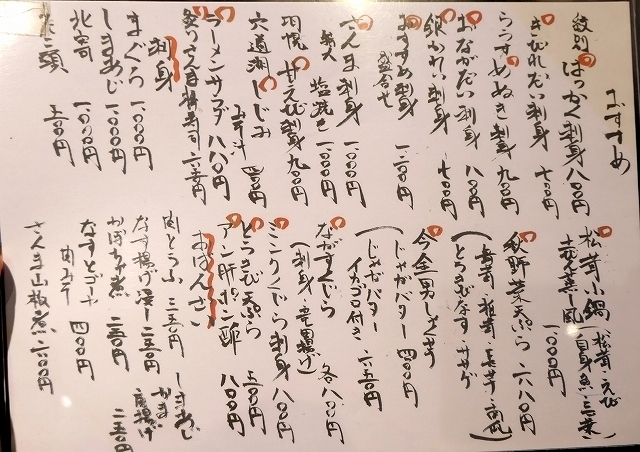 おすすめ
紋別 はっかく刺身 八〇〇円
きびれだい刺身 七〇〇円
らうすめぬき刺身 九〇〇円
おながだい刺身 八〇〇円
銀がれい刺身 七〇〇円
おすすめ刺身
盛合せ 一二〇〇円
さんま刺身 一〇〇〇円
塩焼き 一〇〇〇円
羽幌 甘えび刺身 九〇〇円
穴道湖しじみ
みそ汁 四〇〇円
ラーメンサラダ 八八〇円
炙りさんま棒寿司 六五〇円
刺身
まぐろ 一〇〇〇円
しまあじ 一〇〇〇円
北寄 一〇〇〇円
五〇〇円
松茸小鍋 (松茸・えび
白身魚・三つ葉)
土瓶蒸し風 一〇〇〇円
秋野菜天ぷら 六八〇円
(舞茸・椎茸・
とうきびなす・ササゲ)
今金男しゃく
(じゃがバター 四〇〇円
じゃがバター
イカゴロ付き 六五〇円
ながすくじら
(刺身・竜田揚げ) 各八八〇円
ミンクくじら刺身 八〇〇円
とうきび天ぷら 五〇〇円
アン肝ポン酢 八〇〇円
おばんざい
肉とうふ 三五〇円
なす揚げ浸し 三五〇円
かぼちゃ煮 三五〇円
なすとゴーヤ
肉みそ 四〇〇円
さんま山椒煮 六〇〇円
しまあじ
かま
唐揚げ
三五〇円